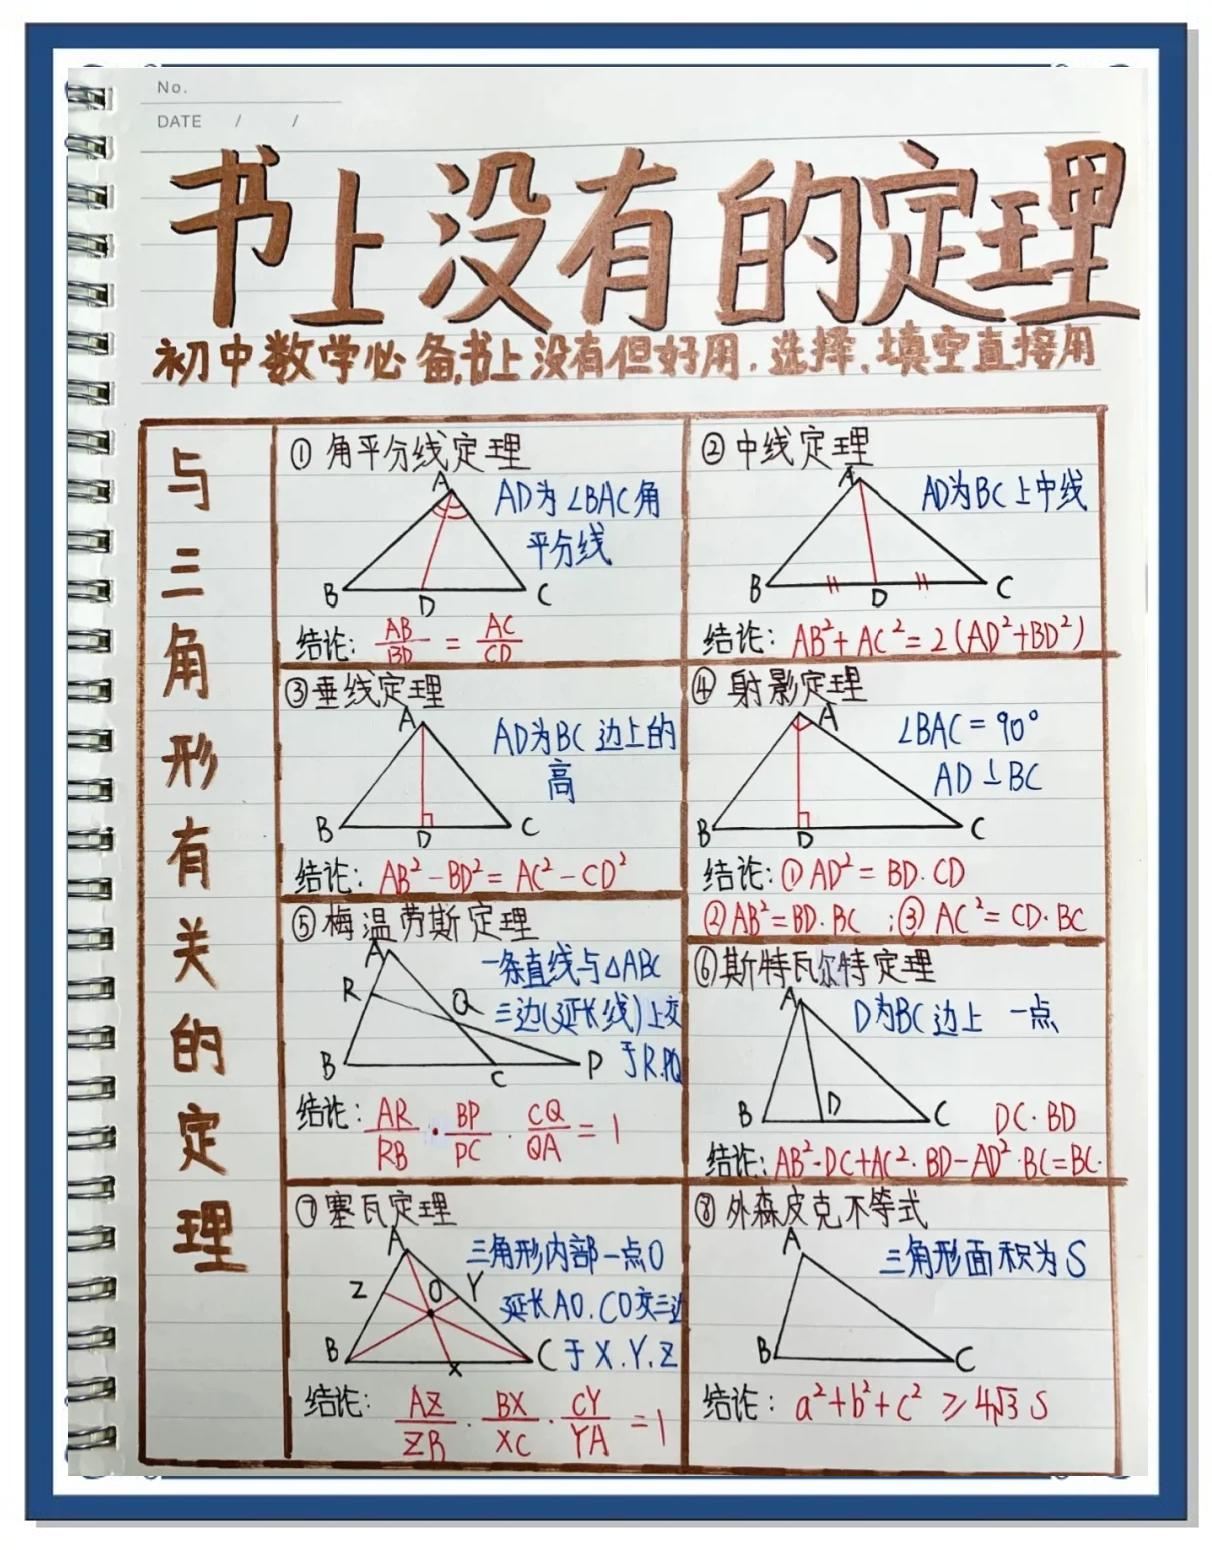 No.
DATE / /
书上没有的定理
初中数学必备,书上没有但好用.选择、填空直接用
与三角形有关的定理
① 角平分线定理
A
AD为∠BAC角
平分线
B D C
结论: AB/BD = AC/CD
② 中线定理
A
AD为BC上中线
B D C
结论: AB²+AC²=2(AD²+BD²)
③垂线定理
A
AD为BC边上的
高
B D C
结论: AB²-BD²=AC²-CD²
④ 射影定理
A
∠BAC=90°
AD⊥BC
B D C
结论:①AD²=BD·CD
②AB²=BD·BC ;③AC²=CD·BC
⑤梅温劳斯定理
A
一条直线与△ABC
R Q
三边(延长线)上交
B C P
于R.PQ
结论: AR/RB · BP/PC · CQ/QA = 1
⑥斯特瓦尔特定理
A
D为BC边上一点
B D C
DC·BD
结论:AB²·DC+AC²·BD-AD²·BC=BC·
⑦塞瓦定理
A
三角形内部一点O
Z O Y
延长AO.CO交三边
B X C
于X.Y.Z
结论: AZ/ZB · BX/XC · CY/YA = 1
⑧外森皮克不等式
A
三角形面积为S
B C
结论: a²+b²+c² ≥ 4√3 S